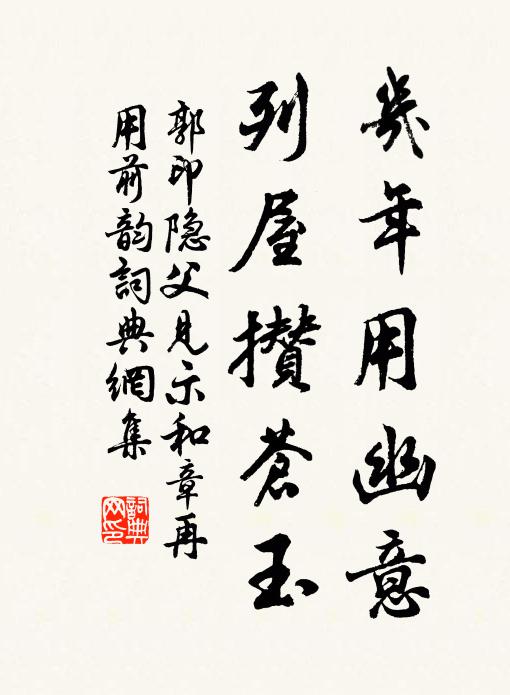 幾年用幽意
列屋攢蒼玉
郭印隐父見示和章再
用前韵詞典網集
詞典
网印